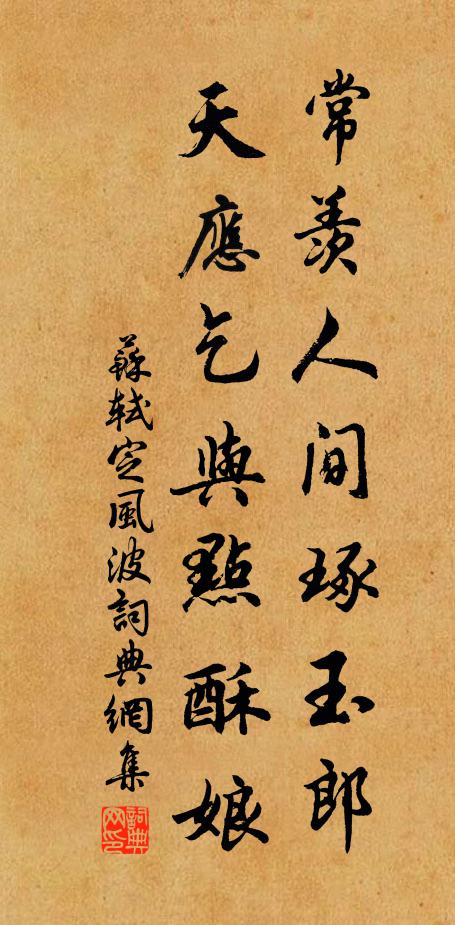 常羨人間琢玉郎
天應乞與點酥娘
蘇軾定風波詞典網集
詞典網印